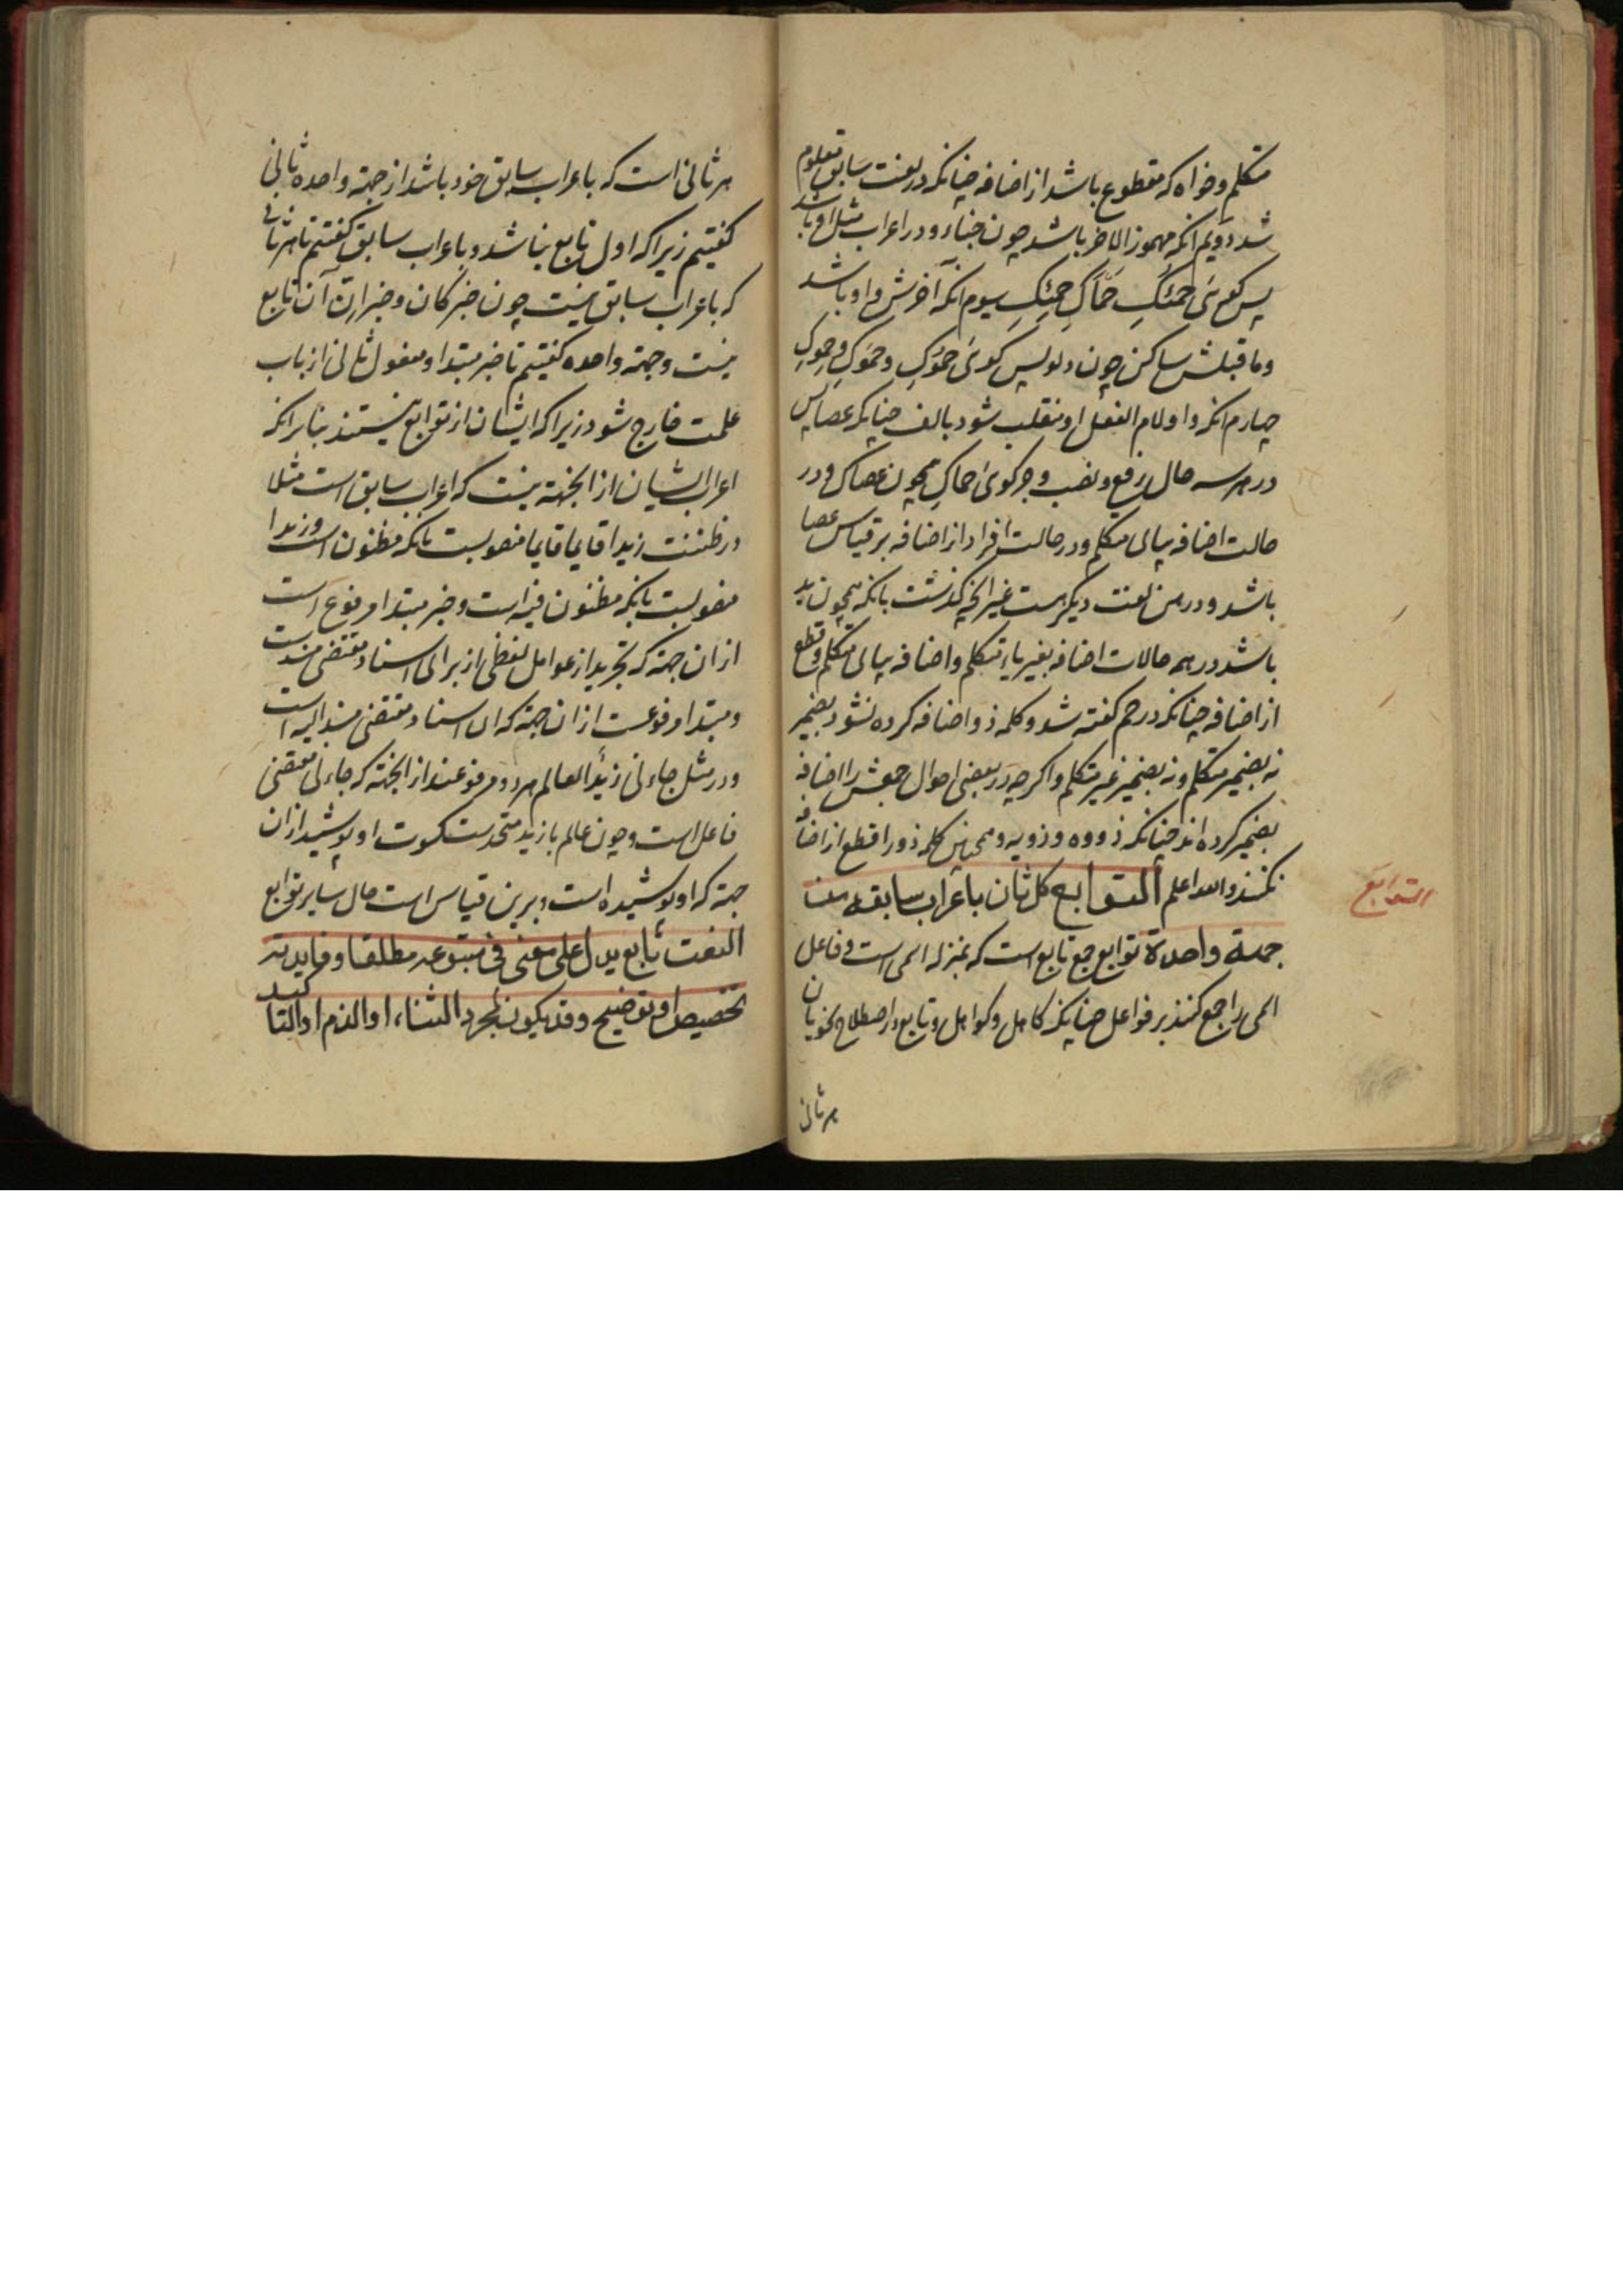 متکلم وخواه که مقطوع باشد از اضافه چنانکه در لغت سابق معلوم
شد دویم انکه مهموز الاخر باشد چون خباء و در اعراب مثل او باشد
پس کوئی حمئک حماک حمئک سیوم انکه آخرش واو باشد
وما قبلش ساکن چون دلو پس کوئی حموک وحموک وحموک
چهارم انکه واو لام الفعل او منقلب شود بالف چنانکه عصا پس
در هر سه حال رفع ونصب وجر کوئی حماک همچون عصاک ودر
حالت اضافه بیای متکلم ودر حالت افراد از اضافه بر قیاس عصا
باشد ودر هن لغت دیکر هست غیر انچه کذشت بانکه همچون ید
باشد در همه حالات اضافه بغیر یاء متکلم واضافه بیای متکلم وقطع
از اضافه چنانکه در حم کفته شد وکلمه ذو اضافه کرده نشود بضمیر
نه بضمیر متکلم ونه بضمیر غیر متکلم واکرچه در بعضی احوال جمعش را اضافه
بضمیر کرده اند چنانکه ذووه وذویه وهمچنین کلمه ذو را قطع از اضافه
نکنند والله اعلم التوابع کل ثان باعراب سابقه من
جهة واحدة توابع جمع تابع است که بمنزله اسمی است وفاعل
اسمی را جمع کنند بر فواعل چنانکه کاهل وکواهل وتابع در اصطلاح نحویان
هر ثانی
التوابع
هر ثانی است که باعراب سابق خود باشد از جهة واحده ثانی
کفتیم زیرا که اول تابع نباشد وباعراب سابق کفتیم تا هر ثانی
که باعراب سابق نیست چون خبر کان وخبر ان آن تابع
نیست وجهة واحده کفتیم تا خبر مبتدا ومفعول ثانی از باب
علمت خارج شود زیرا که ایشان از توابع نیستند بنابر انکه
اعراب ایشان از انجهة نیست که اعراب سابق است مثلا
در ظننت زیدا قایما قایما منصوبست بانکه مظنون است وزیدا
منصوبست بانکه مظنون فیه است وخبر مبتدا مرفوع است
از ان جهة که تجرید از عوامل لفظی از برای اسناد مقتضی مسندست
ومبتدا مرفوعست از ان جهة که ان اسناد مقتضی مسند الیه است
ودر مثل جاءنی زید العالم هر دو مرفوعند از انجهة که جاءنی مقتضی
فاعل است وچون عالم با زید متحدست کسوت او پوشید از ان
جهة که او پوشیده است وبرین قیاس است حال سایر توابع
النعت تابع یدل علی معنی فی متبوعه مطلقا وفایدته
تخصیص او توضیح وقد یکون لمجرد الثناء او الذم او التاکید